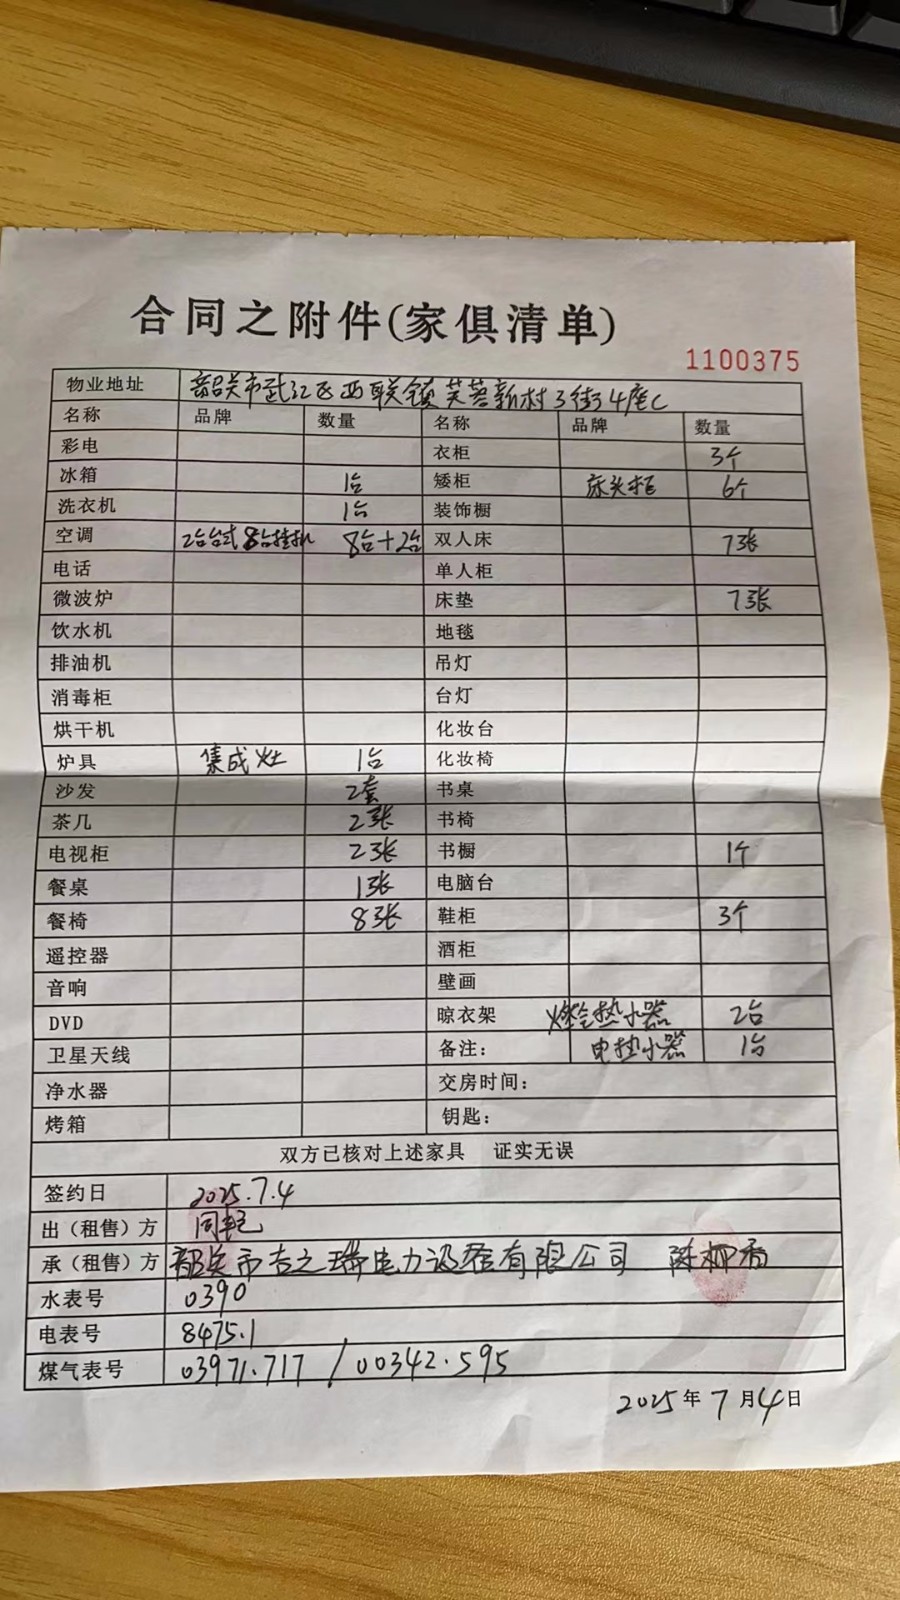 合同之附件(家俱清单)
1100375
物业地址 韶关市武江区西联镇芙蓉新村3街4座C
名称 品牌 数量 名称 品牌 数量
彩电 衣柜 3个
冰箱 1台 矮柜 床头柜 6个
洗衣机 1台 装饰橱
空调 2台台式8台挂机 8台+2台 双人床 7张
电话 单人柜
微波炉 床垫 7张
饮水机 地毯
排油机 吊灯
消毒柜 台灯
烘干机 化妆台
炉具 集成灶 1台 化妆椅
沙发 2套 书桌
茶几 2张 书椅
电视柜 2张 书橱 1个
餐桌 1张 电脑台
餐椅 8张 鞋柜 3个
遥控器 酒柜
音响 壁画
DVD 晾衣架 热水器 2台
卫星天线 备注: 电热水器 1台
净水器 交房时间:
烤箱 钥匙:
双方已核对上述家具 证实无误
签约日 2025.7.4
出（租售）方
承（租售）方 韶关市吉之瑞电力设备有限公司 陈柳
水表号 0390
电表号 8475.1
煤气表号 03971.717 / 00342.595
2025年7月4日